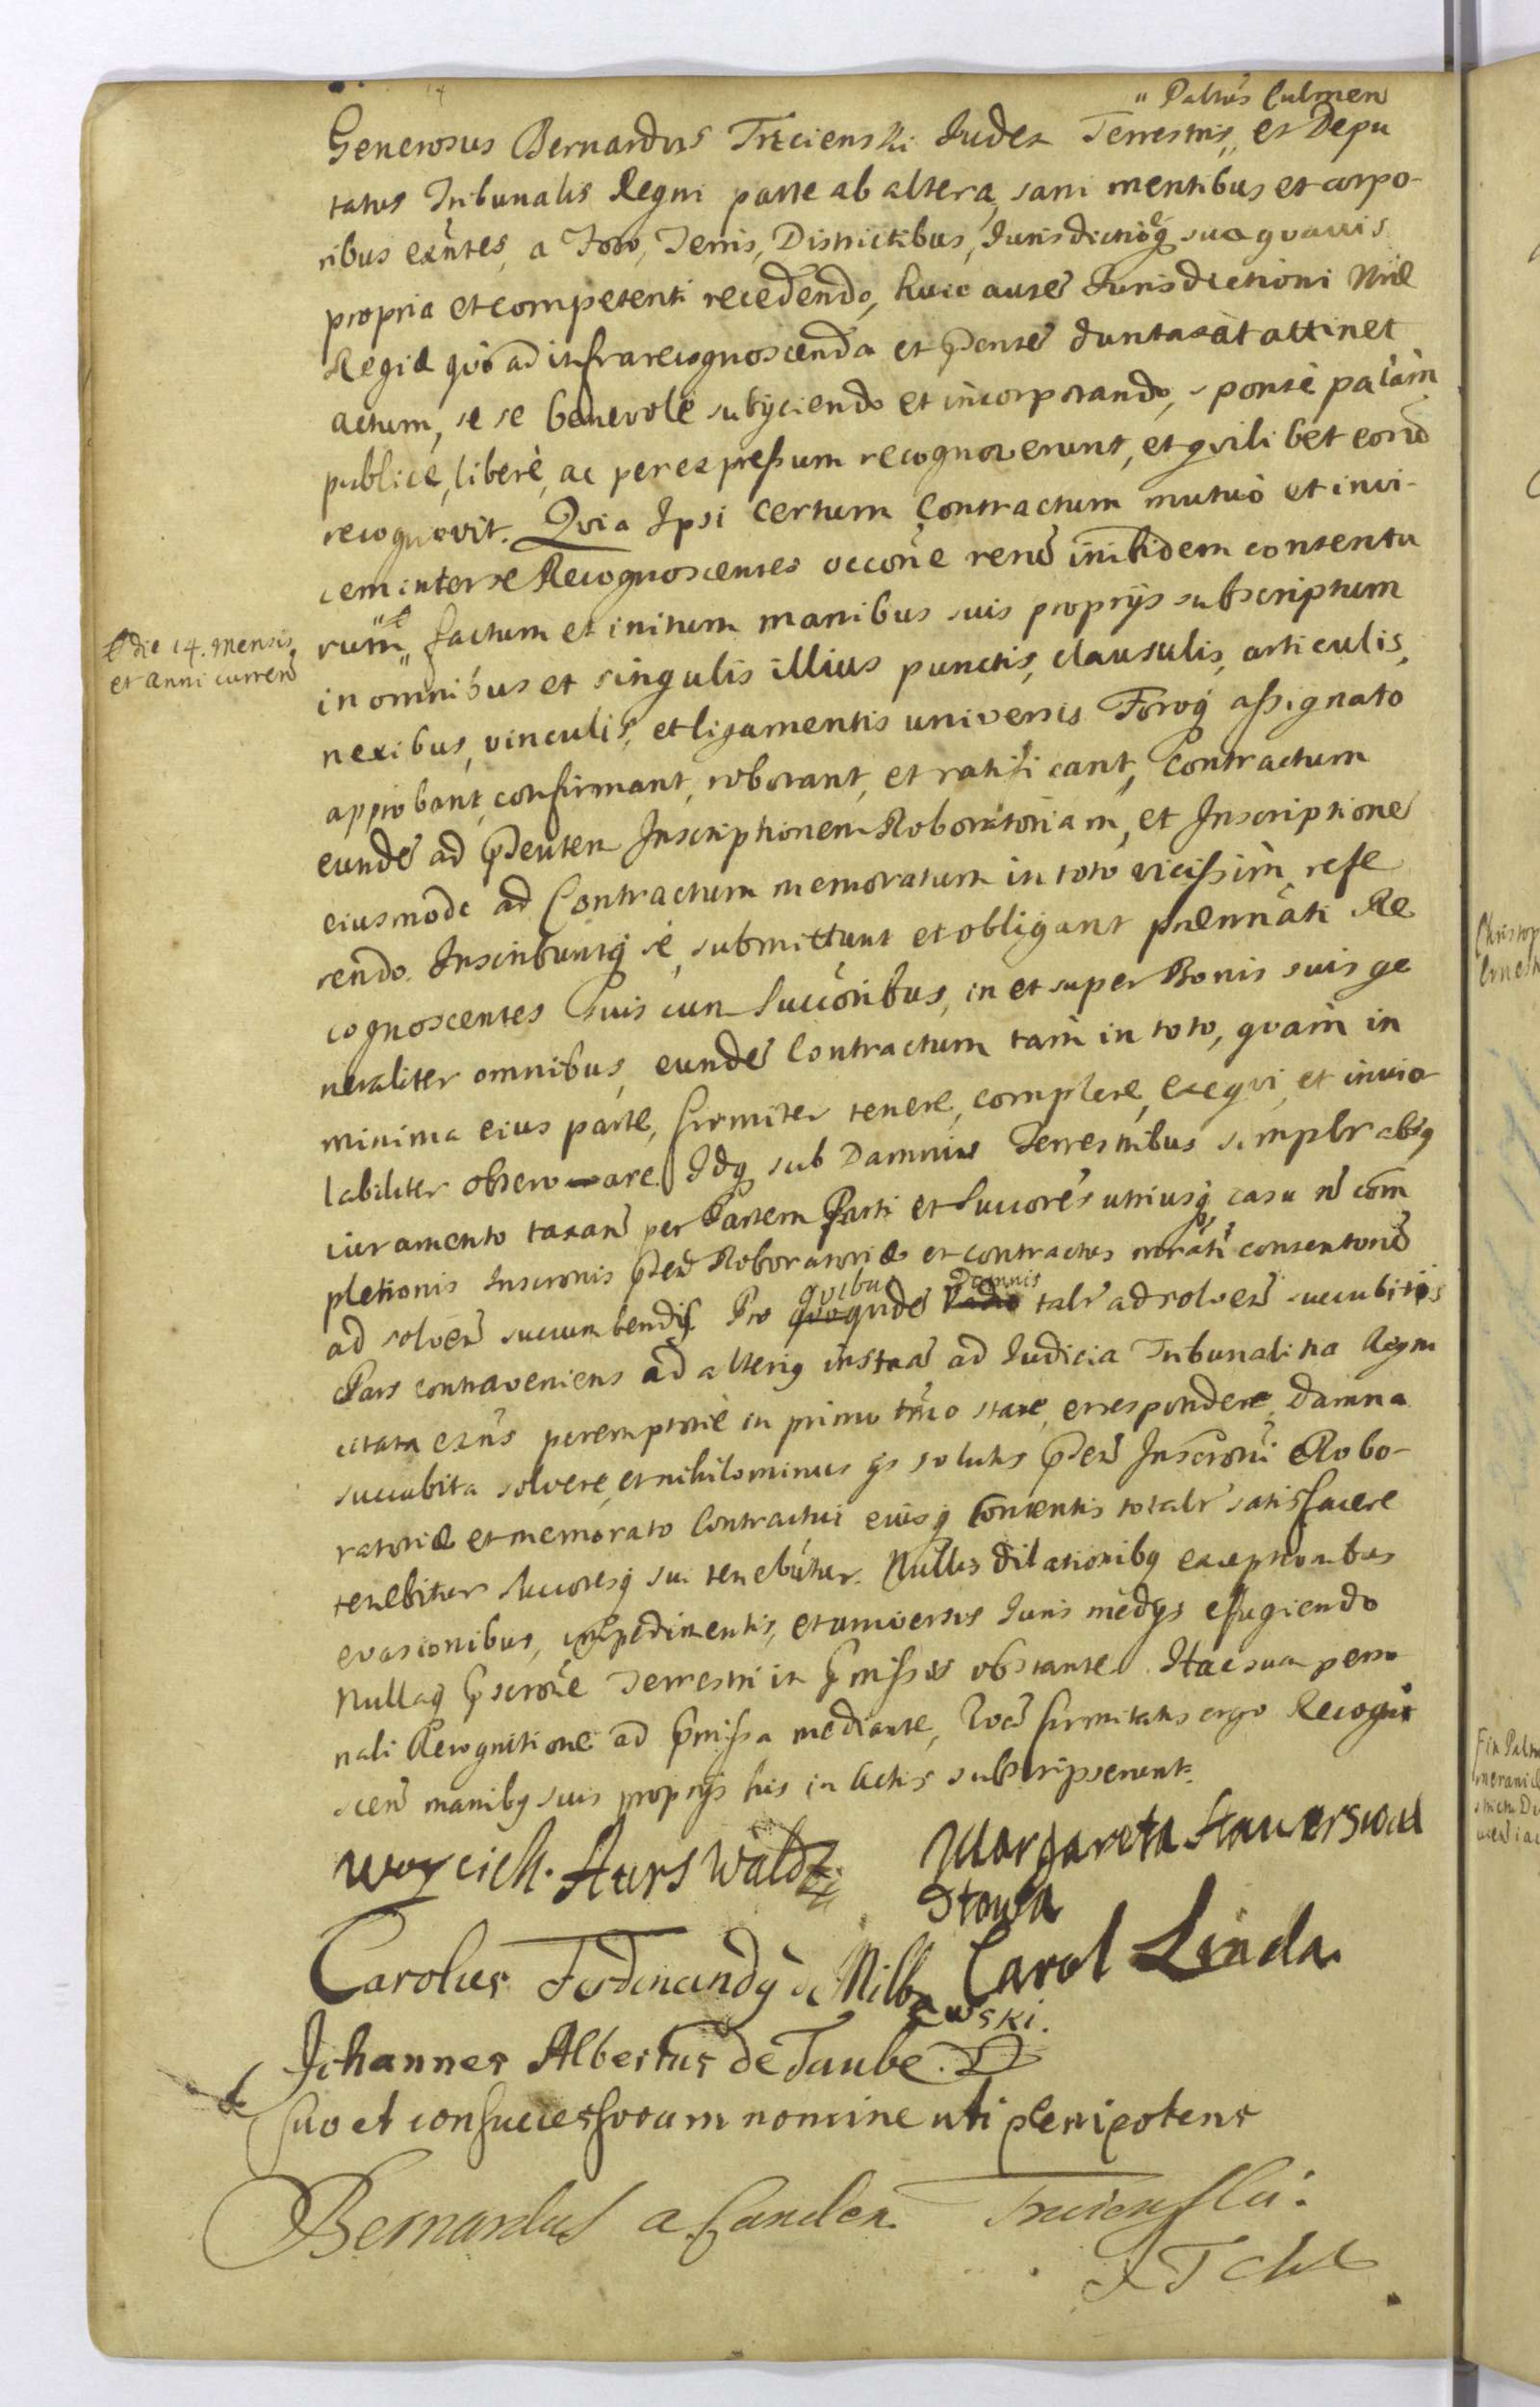 " Paltũs Culmen
Generosus Bernardus Trzcienski Iudex Terrestris,, et Depu
tatus Tribunalis Regni parte ab altera, sani mentibus et corpo-
ribus exñtes, a Foro, Terris, Districtibus, Iurisdictioẽq suo quavis
propria et competenti recedendo, huic autẽ Iurisdictioni
Regiæ quò ad infrarecognoscenda et Pñtẽ duntaxat attinet
actum, se se benevolè subÿciendo et incorporando, sponte palàm
publicè, liberè, ac per expressum recognoverunt, et quilibet eorũ
recognovit. Quia Ipsi certum Contractum mutuò et invi-
cem inter se Recognoscentes occõne rerũ inibidem contentu
rum,, factum et initum manibus suis proprÿs subscriptum
Et die 14. mensis
et anni curren̄
in omnibus et singulis illius punctis, clausulis, articulis,
nexibus, vinculis, et ligamentis universis Foroq assignato
approbant, confirmant, roborant, et ratificant, Contractum
eundẽ ad Pñtem Inscriptionem Roboratoriam, et Inscriptionẽ
eiusmodi ad Contractum memoratum in toto vicissim refe
rendo. Inscribuntq sè, submittunt et obligant prænnãti Re
cognoscentes suis cum Succõribus, in et super Bonis suis ge
neraliter omnibus, eundẽ Contractum tam in toto, quàm in
minima eius parte, firmiter tenere, complere, exequi, et invio
labiliter observare. Idq sub Damnis Terrestribus simplr absq
iuramento taxan̄ per Partem Parti et Succorẽs utriusq casu ñ com
pletionis Inscronis Pñtis Roboratoriæ et contractus mrãti contentorũ
ad solven̄ succumbendis. Pro quibus quidẽ Damnis talr adsolven̄ succubitis
Pars contraveniens ad alteriq instan̄ ad Iudicia Tribunalitia Regni
citata exñs peremptoriè in primo tmõ stare, et respondere, Damna
succubita solvere, et nihilominus ÿs solutis Pñti Inscroni Robo-
ratoriæ et memorato Contractui eiusq Contentis totalr satisfacere
tenebitur Succoresq sui tenebuntur. Nullis dilationibq exceptionibus
evasionibus, impedimentis, et universis Iuris medÿs effugiendo
Nullaq Pscrõne Terrestri in Pmissis obstante. Hac sua perso
nali Recognitione ad Pmissa mediante, firmitatis ergo Recogno
scen̄ manibq suis proprÿs his in Actis subscripserunt.
Woycich. Aurswaldt
Margareta Hauerswal
dtowa
Carolus Ferdinandq de Milb
ewski.
Carol Linda.
Johannes Albertus de Taube.
suo et consuccessorum nomine uti plenipotens
Bernardus a Canden Trzcienski.
J T Chł